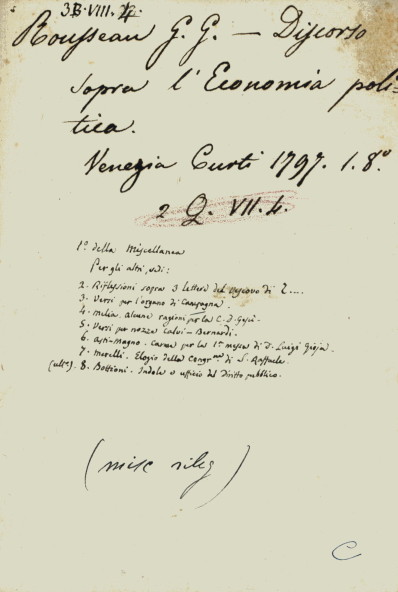 3B.VIII.4.
Rousseau G. G. — Discorso
sopra l'Economia poli=
tica.
Venezia Curti 1797. 1. 8º.
2 Q. VII. 4.
1º della Miscellanea
Per gli altri, vedi:
2. Riflessioni sopra 3 lettere del vescovo di
3. Versi per l'organo di Campagna.
4. Melia. Alcune ragioni per la C. d. Gesù.
5. Versi per nozze Calvi - Bernardi.
6. Asti-Magno. Carme per la 1ª messa di D. Luigi
7. Morelli. Elogio della Congr.ne di S. Raffaele.
8. Bottioni. Indole e ufficio del Diritto pubblico.
(misc rileg)
C